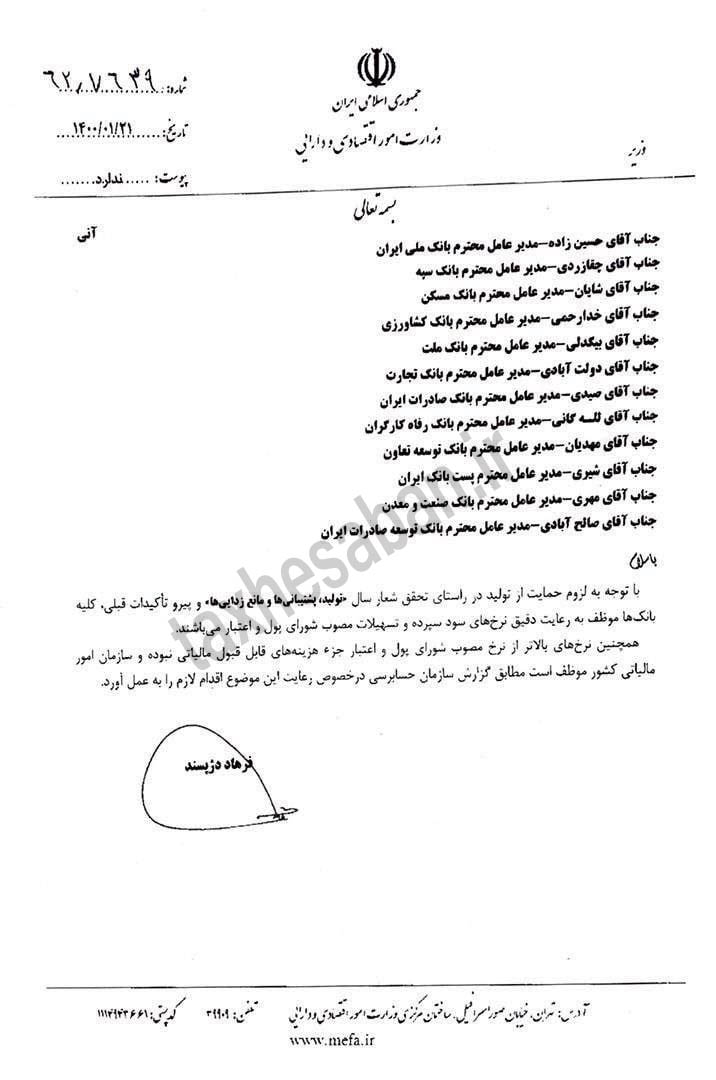 جمهوری اسلامی ایران
وزارت امور اقتصادی و دارایی
وزیر
شماره: ۶۲/۷۶۳۹
تاریخ: ۱۴۰۰/۰۱/۲۱
پیوست: ندارد
بسمه تعالی
آنی
جناب آقای حسین زاده-مدیر عامل محترم بانک ملی ایران
جناب آقای چقازردی-مدیر عامل محترم بانک سپه
جناب آقای شایان-مدیر عامل محترم بانک مسکن
جناب آقای خدارحمی-مدیر عامل محترم بانک کشاورزی
جناب آقای بیگدلی-مدیر عامل محترم بانک ملت
جناب آقای دولت آبادی-مدیر عامل محترم بانک تجارت
جناب آقای صیدی-مدیر عامل محترم بانک صادرات ایران
جناب آقای لله گانی-مدیر عامل محترم بانک رفاه کارگران
جناب آقای مهدیان-مدیر عامل محترم بانک توسعه تعاون
جناب آقای شیری-مدیر عامل محترم پست بانک ایران
جناب آقای مهری-مدیر عامل محترم بانک صنعت و معدن
جناب آقای صالح آبادی-مدیر عامل محترم بانک توسعه صادرات ایران
باسلام
با توجه به لزوم حمایت از تولید در راستای تحقق شعار سال «تولید، پشتیبانی‌ها و مانع زدایی‌ها» و پیرو تأکیدات قبلی، کلیه
بانک‌ها موظف به رعایت دقیق نرخ‌های سود سپرده و تسهیلات مصوب شورای پول و اعتبار می‌باشند.
همچنین نرخ‌های بالاتر از نرخ مصوب شورای پول و اعتبار جزء هزینه‌های قابل قبول مالیاتی نبوده و سازمان امور
مالیاتی کشور موظف است مطابق گزارش سازمان حسابرسی درخصوص رعایت این موضوع اقدام لازم را به عمل آورد.
فرهاد دژپسند
taxhesaban.ir
آدرس: تهران، خیابان صوراسرافیل، ساختمان مرکزی وزارت امور اقتصادی و دارایی تلفن: ۳۹۹۰۹ کدپستی: ۱۱۱۴۹۴۳۶۶۱
www.mefa.ir